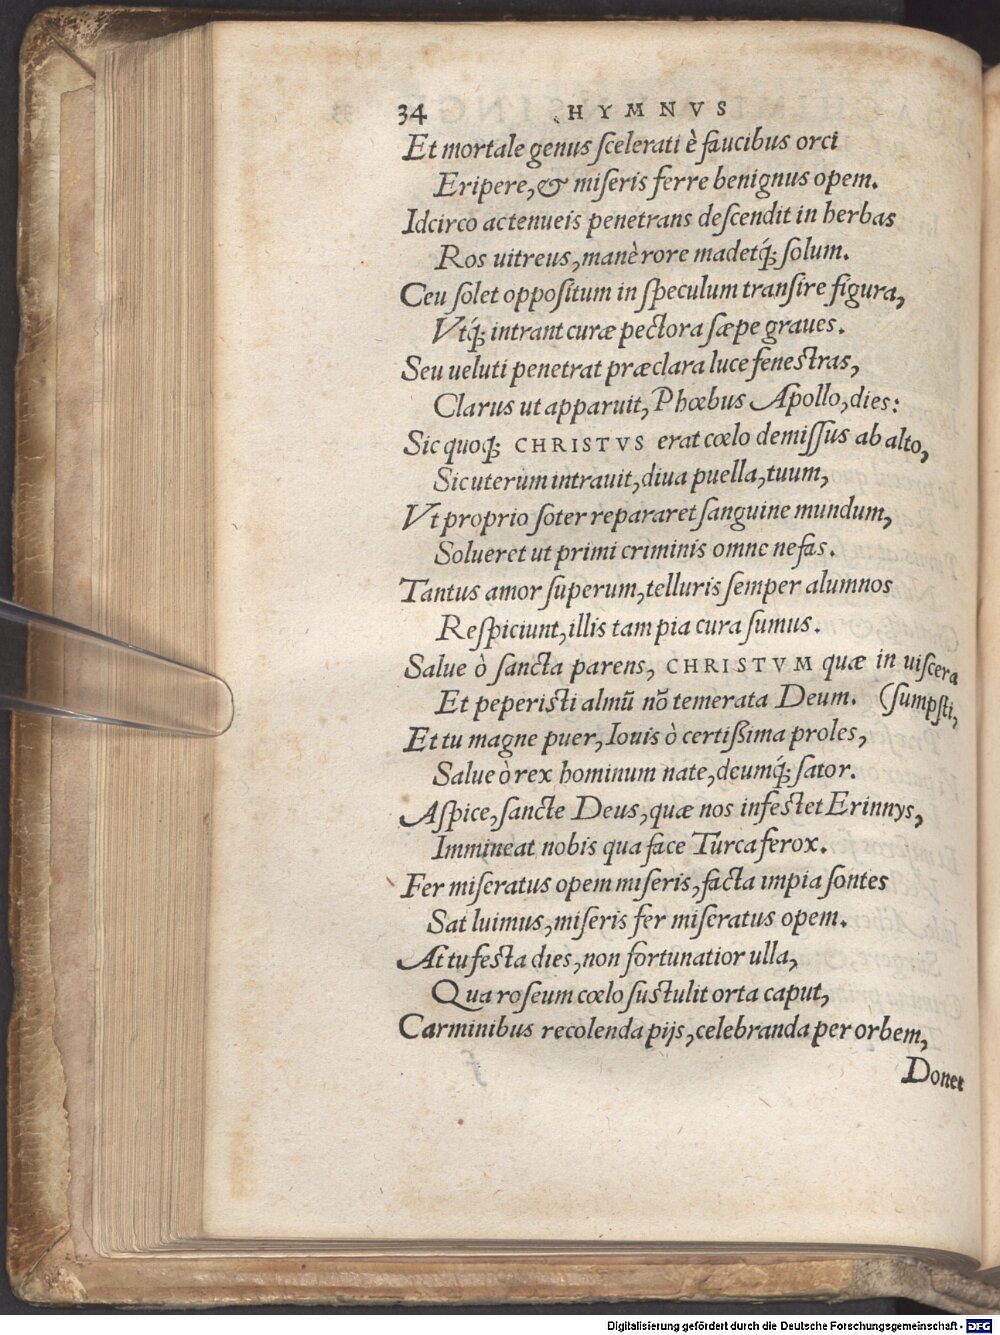 34 HYMNVS
Et mortale genus ſcelerati è faucibus orci
Eripere, & miſeris ferre benignus opem.
Idcirco ac tenueis penetrans deſcendit in herbas
Ros uitreus, manè rore madetq́; ſolum.
Ceu ſolet oppoſitum in ſpeculum tranſire figura,
Vtq́; intrant curæ pectora ſæpe graues.
Seu ueluti penetrat præclara luce feneſtras,
Clarus ut apparuit, Phœbus Apollo, dies:
Sic quoq; CHRISTVS erat cœlo demiſſus ab alto,
Sic uterum intrauit, diua puella, tuum,
Vt proprio ſoter repararet ſanguine mundum,
Solueret ut primi criminis omne nefas.
Tantus amor ſuperum, telluris ſemper alumnos
Reſpiciunt, illis tam pia cura ſumus.
Salue ò ſancta parens, CHRISTVM quæ in uiſcera
Et peperiſti almū nō temerata Deum. (ſumpſti,
Et tu magne puer, Iouis ò certißima proles,
Salue ò rex hominum nate, deumq́; ſator.
Aſpice, ſancte Deus, quæ nos infeſtet Erinnys,
Immineat nobis qua face Turca ferox.
Fer miſeratus opem miſeris, facta impia ſontes
Sat luimus, miſeris fer miſeratus opem.
At tu feſta dies, non fortunatior ulla,
Qua roſeum cœlo ſuſtulit orta caput,
Carminibus recolenda pijs, celebranda per orbem,
Donec
Digitalisierung gefördert durch die Deutsche Forschungsgemeinschaft - DFG